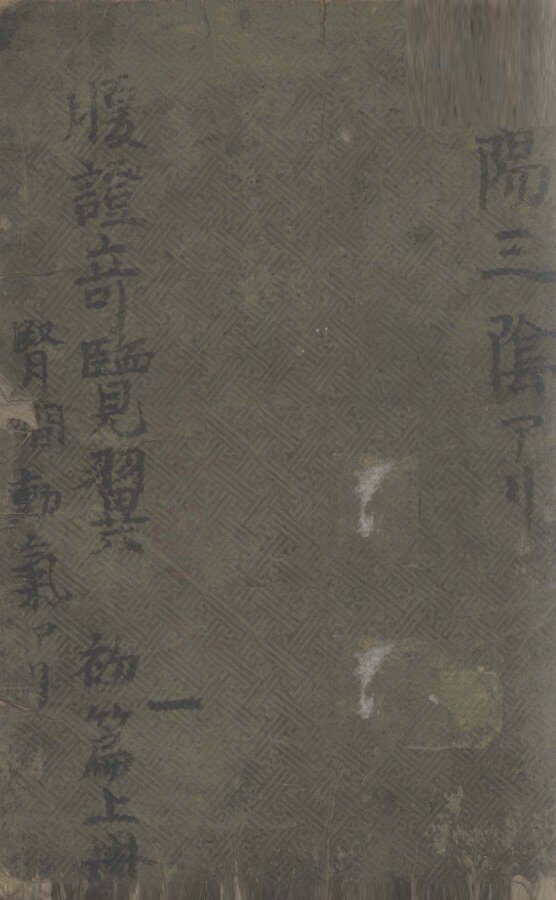 陽三陰アリ
腹證奇覽翼 初篇上冊
一
腎間動氣アリ